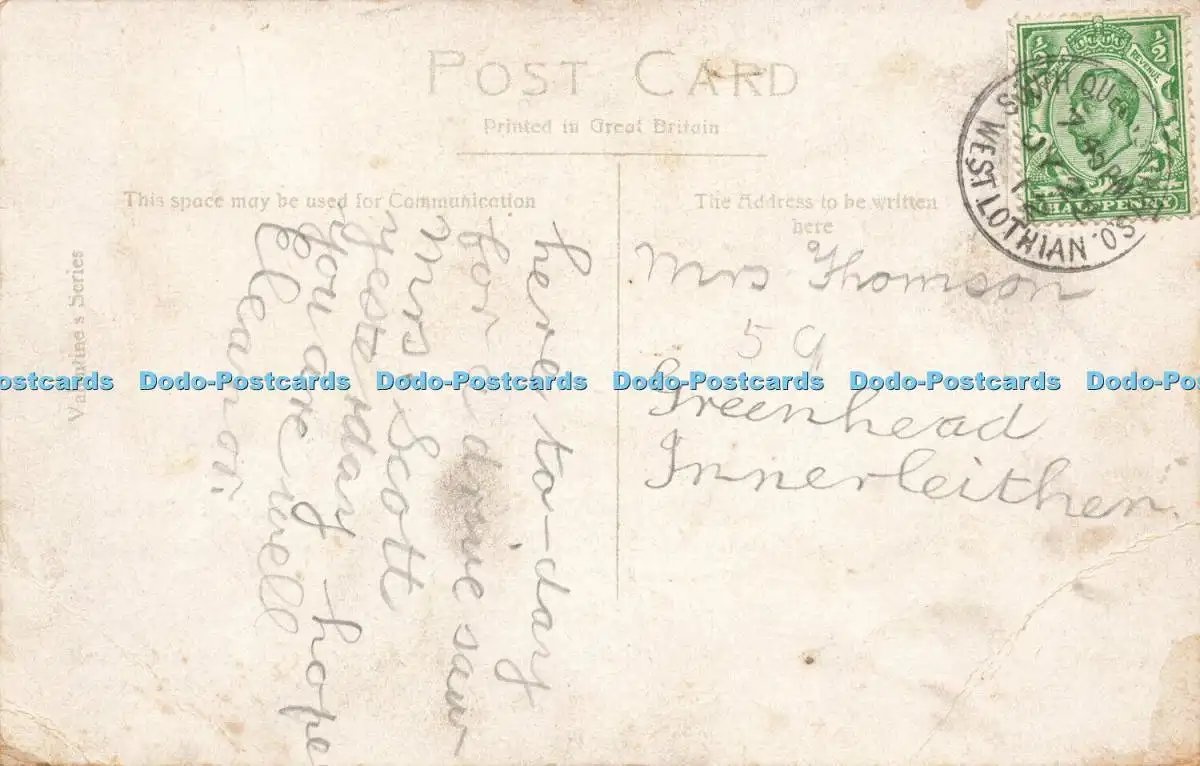 POST CARD
Printed in Great Britain
This space may be used for Communication
The Address to be written
here
Valentine's Series
½ ½
REVENUE
HALFPENNY
SOUTH
WEST LOTHIAN
here to-day
for a drive saw
Mrs Scott
yesterday hope
you are well
Eleanor.
Mrs Thomson
59
Greenhead
Innerleithen.
Dodo-Postcards Dodo-Postcards Dodo-Postcards Dodo-Postcards Dodo-Postcards